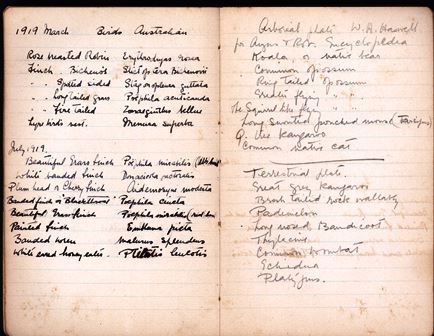 1919 March Birds Australian
Rose breasted Robin Erythrodryas rosea
Finch. Bicheno's Stictoptera Bichenovii
" Spotted sided Staganopleura guttata
" Long tailed grass Poephila acuticauda
" Fire tailed Zonaeginthus bellus
Lyre birds nest. Menura superba
July 1919.
Beautiful Grass finch Poephila mirabilis
White banded finch Donacicola pectoralis
Plum head or Cherry finch Aidemosyne modesta
Banded finch or Blackthroat Poephila cincta
Beautiful Grass finch Poephila mirabilis
Painted finch Emblema picta
Banded wren Malurus splendens
White eared honey eater. Ptilotis leucotis
Arboreal plate W. A. Haswell
for Angus & Rob. Encyclopedia
Koala, or native bear
Common opossum
Ring tailed opossum
Greater flying "
The Squirrel like flying "
Long snouted pouched mouse (Tarsipes)
Q. tree kangaroo
Common native cat
Terrestrial plate.
Great Grey Kangaroo
Brush tailed rock wallaby
Pademelon
Long nosed Bandicoot
Thylacine
Common Wombat
Echidna
Platypus.